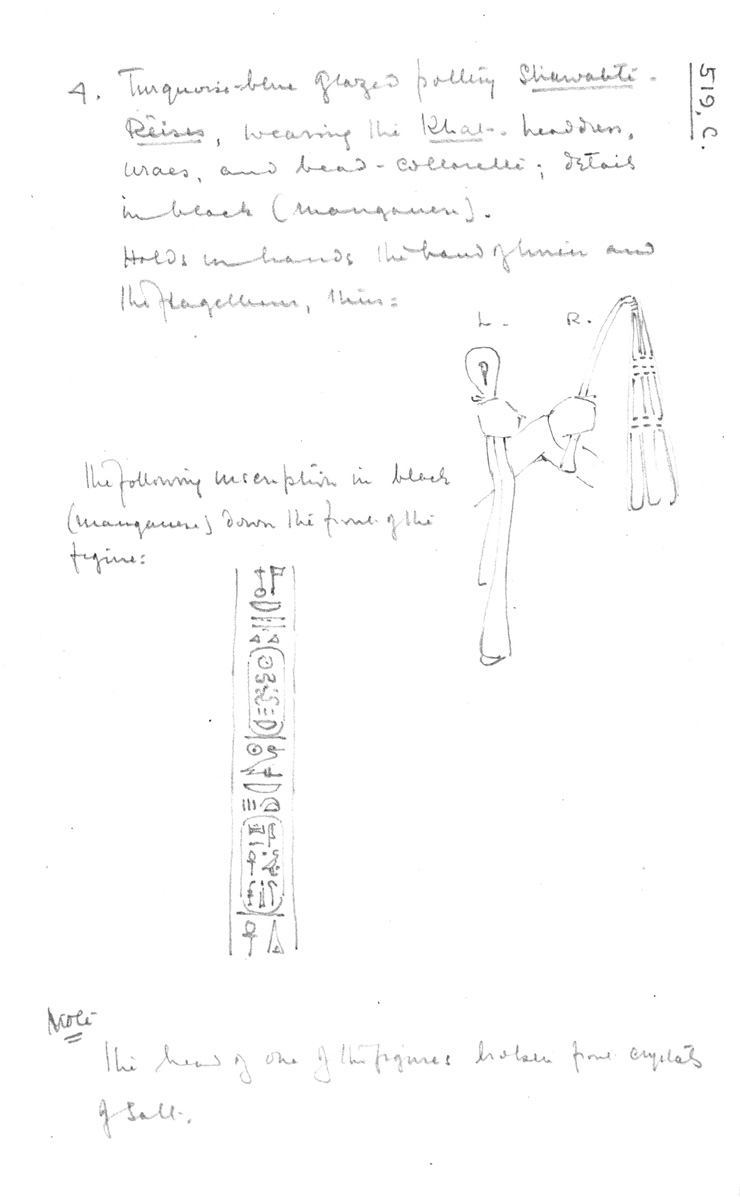 519, C.
4. Turquoise-blue glazed pottery Shawabti-
Reises, wearing the Khat-headdress,
uraes, and bead-collarette; details
in black (manganese).
Holds in hands the band of linen and
the flagellum, thus:
L. R.
The following inscription in black
(manganese) down the front of the
figure:
Note
The head of one of the figures broken from crystals
of salt.